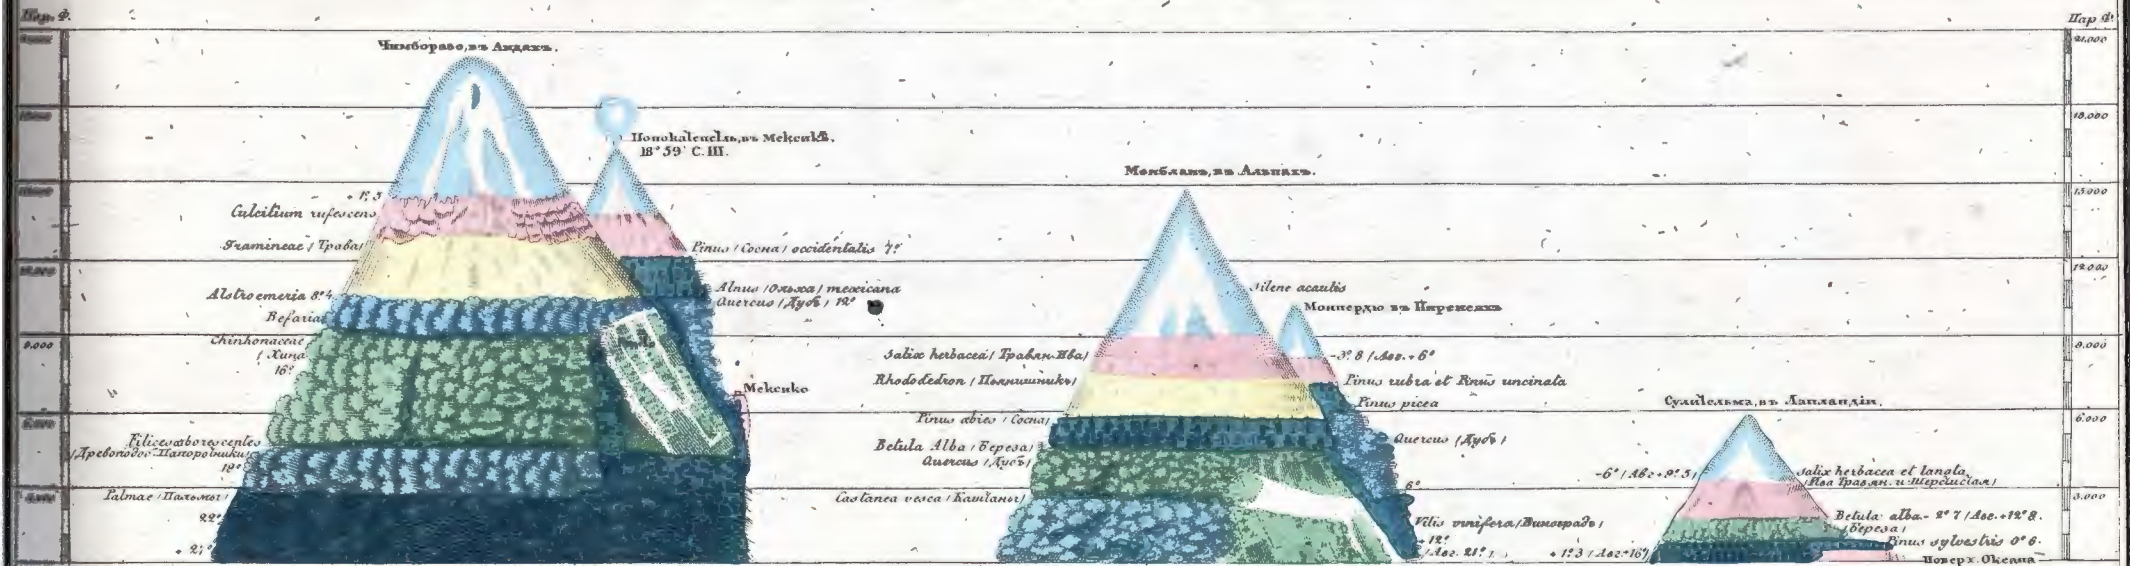 Пар. Ф.
Пар Ф.
21.000
18.000
15.000
12.000
9.000
9.000
6.000
3.000
Чимборазо, въ Андахъ.
+ 1°,5
Culcitium rufescens
Gramineae / Трава /
Alstroemeria 8°4
Befaria
Chinhonaceae
/ Хина
16°
Filices arborescentes
/ Древоподоб. Папоротники /
19°
Palmae / Пальмы /
22°
+ 27°
въ Мексикѣ.
18° 59' С. Ш.
Pinus / Сосна / occidentalis 7°
Alnus / Ольха / mexicana
Quercus / Дубъ / 12°
Мексико
Монбланъ, въ Альпахъ.
Silene acaulis
Монпердю въ Пиренеяхъ
Salix herbacea / Травян. Ива /
Rhododedron / Пьянишникъ /
Pinus abies / Сосна /
Betula Alba / Береза /
Quercus / Дубъ /
Castanea vesca / Каштаны /
-3° 8 / Авг. + 6°
Pinus rubra et Pinus uncinata
Pinus picea
Quercus / Дубъ /
6°
Vitis vinifera / Виноградъ /
+ 12°
/ Авг. 21° /
Сулительма, въ Лапландіи.
-6° / Авг + 9° 5 /
Salix herbacea et lanata
/ Ива Травян. и Шерстистая /
Betula alba - 2° 7 / Авг. + 12° 8.
/ Береза /
Pinus sylvestris 0° 6.
+ 1° 3 / Авг + 16° /
Поверх. Океана